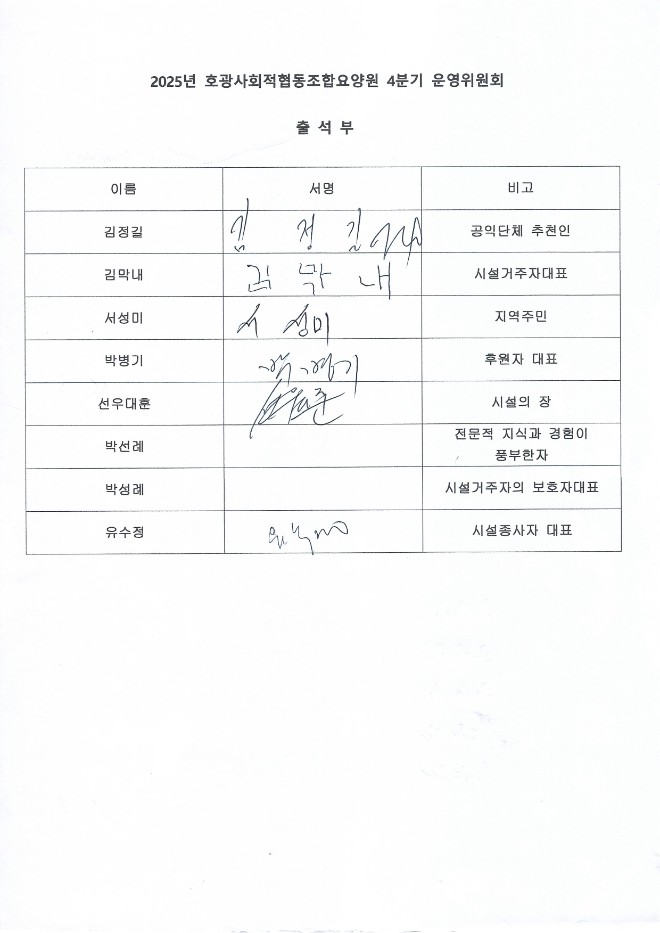 2025년 호광사회적협동조합요양원 4분기 운영위원회
출 석 부
이름 서명 비고
김정길 김 정 길 공익단체 추천인
김막내 김 막 내 시설거주자대표
서성미 서 성미 지역주민
박병기 박병기 후원자 대표
선우대훈 시설의 장
박선례 전문적 지식과 경험이
풍부한자
박성례 시설거주자의 보호자대표
유수정 시설종사자 대표